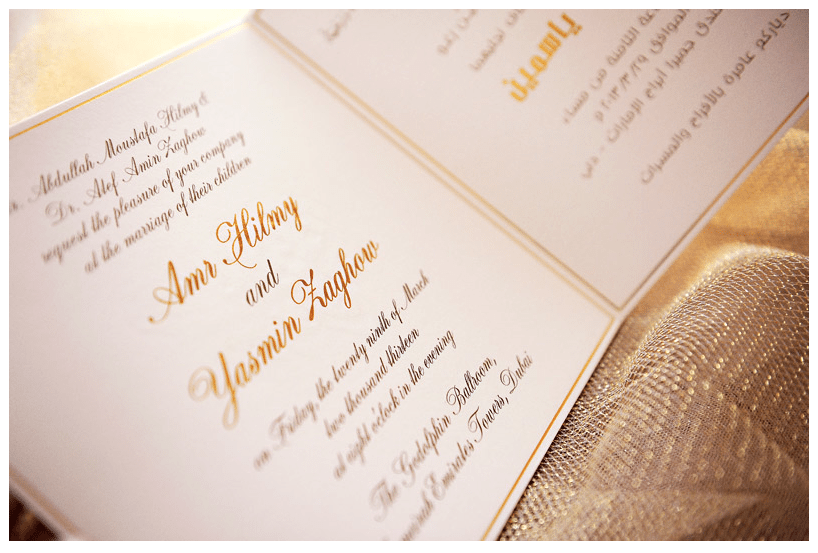 Abdullah Moustafa Hilmy &
Dr. Atef Amin Zaghow
request the pleasure of your company
at the marriage of their children
Amr Hilmy
and
Yasmin Zaghow
on Friday, the twenty ninth of March
two thousand thirteen
at eight o'clock in the evening
The Godolphin Ballroom,
Emirates Towers, Dubai
ياسمين
الثامنة من مساء
الموافق ٢٠١٣/٣/٢٩ م
أبراج الإمارات - دبي
دياركم عامرة بالأفراح والمسرات